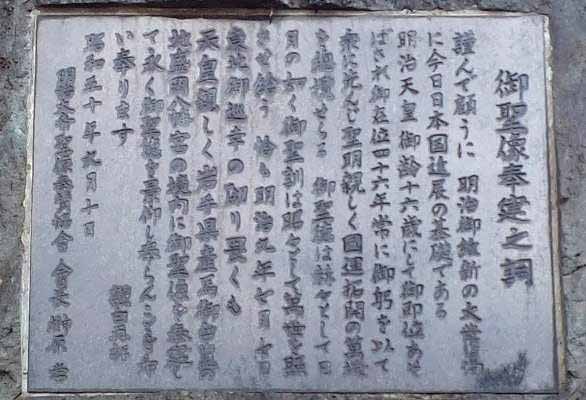 御聖像奉建之詞
謹んで顧うに 明治御維新の大業は
に今日日本国進展の基礎である
明治天皇 御齢十六歳にして御即位あそ
ばされ御在位四十六年常に御躬を以て
衆に先んじ聖明親しく國運拓開の萬機
を總攬せらる 御聖徳は赫々として日
月の如く御聖訓は 々として萬世を照
させ給う 恰も明治九年七月十日
東北御巡幸の御り畏くも
天皇親しく岩手県産馬御白覧
地盛岡八幡宮の境内に御聖像を奉建し
て永く御聖徳を景仰し奉らんことを希
い奉ります
昭和五十年九月十日
明治天皇聖像奉賛協會 會長